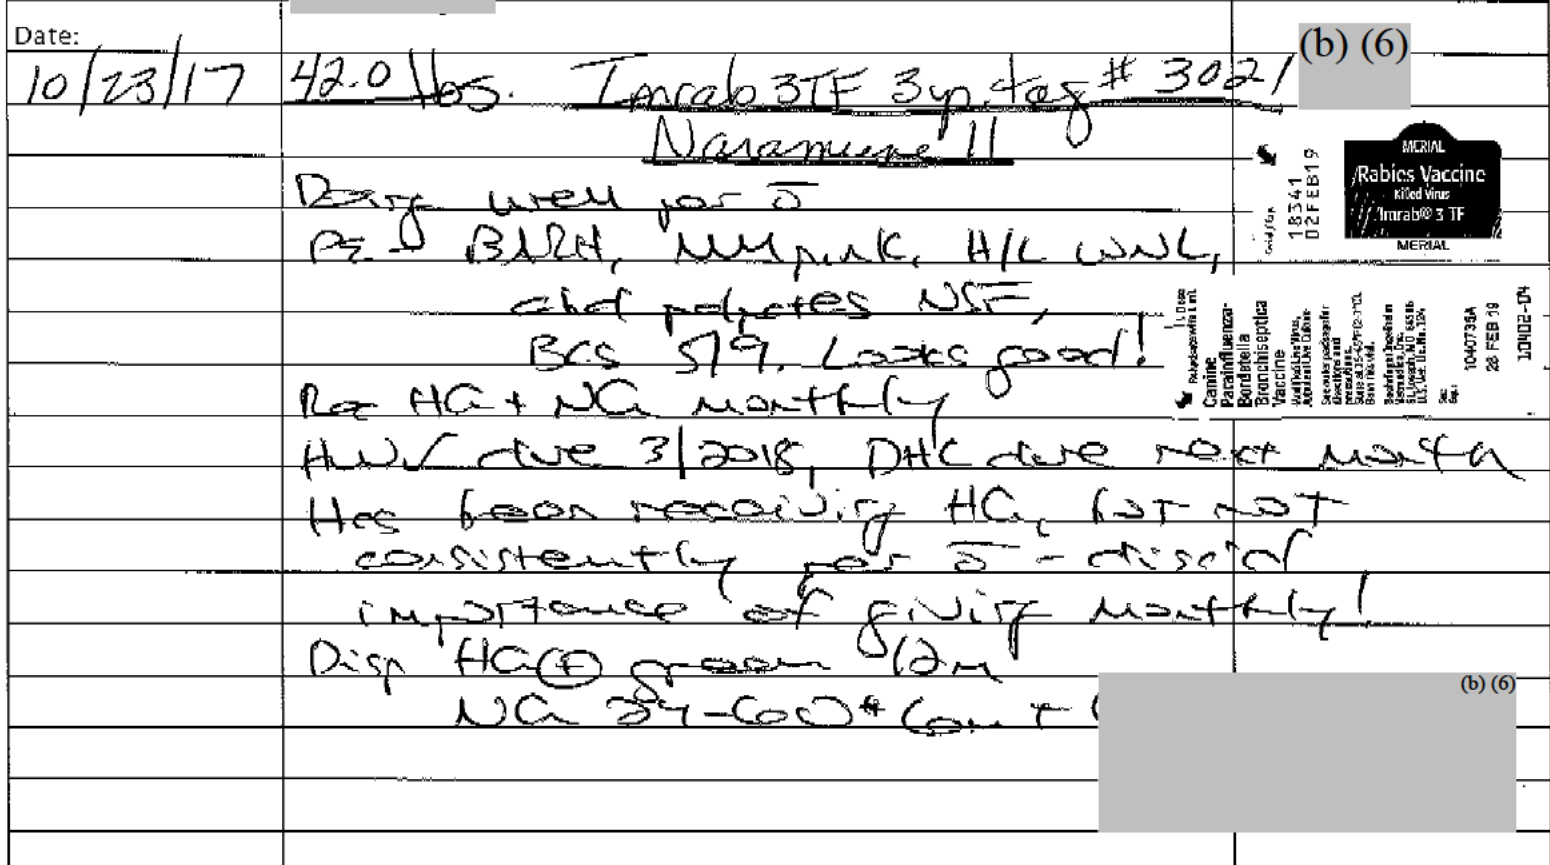 Date:
(b) (6)
10/23/17 42.0 lbs. Imrab 3TF 3yr. tag # 3021
Naramune II
Doing well per ō
PE - BARH, MM pink, H/L WNL,
abd palpates NSF,
BCS 5/9. Looks good!
Rec HG + NG monthly
HW√ due 3/2018, DHLC due next month
Has been receiving HG, but not
consistently per ō - disc'd
importance of giving monthly!
Disp HG(+) green 12m
NG 24-60# 6m +
(b) (6)
18341
02FEB19
MERIAL
Rabies Vaccine
Killed Virus
Imrab® 3 TF
MERIAL
Canine
Parainfluenza-
Bordetella
Bronchiseptica
Vaccine
1040735A
28 FEB 19
10402-04